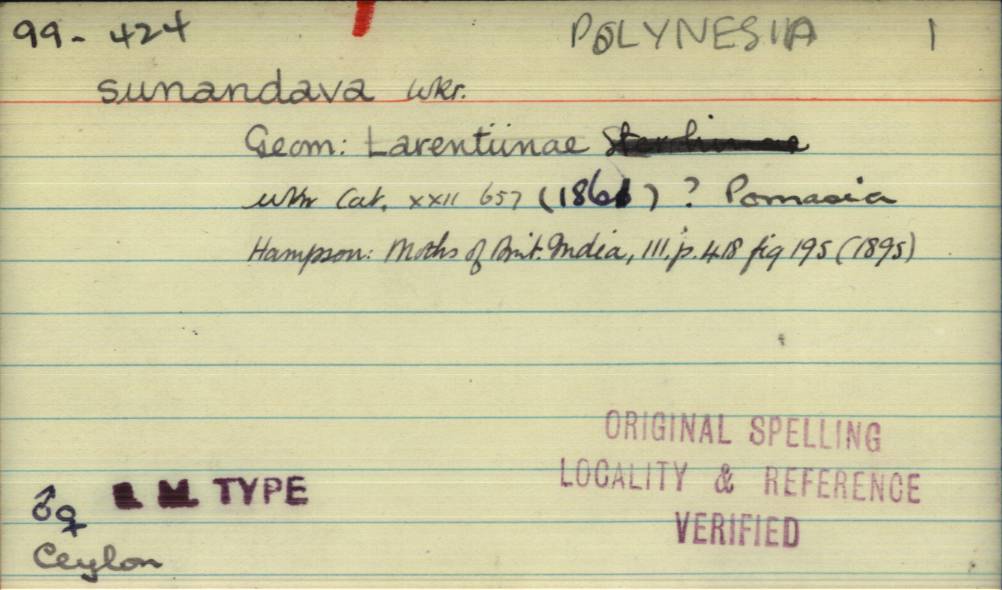 99- 424 POLYNESIA 1
sunandava Wkr.
Geom: Larentiinae
Wkr Cat. XXII 657 (1861) ? Pomasia
Hampson: Moths of Brit. India, III. p. 418 fig 195 (1895)
ORIGINAL SPELLING
LOCALITY & REFERENCE
VERIFIED
♂♀ TYPE
Ceylon